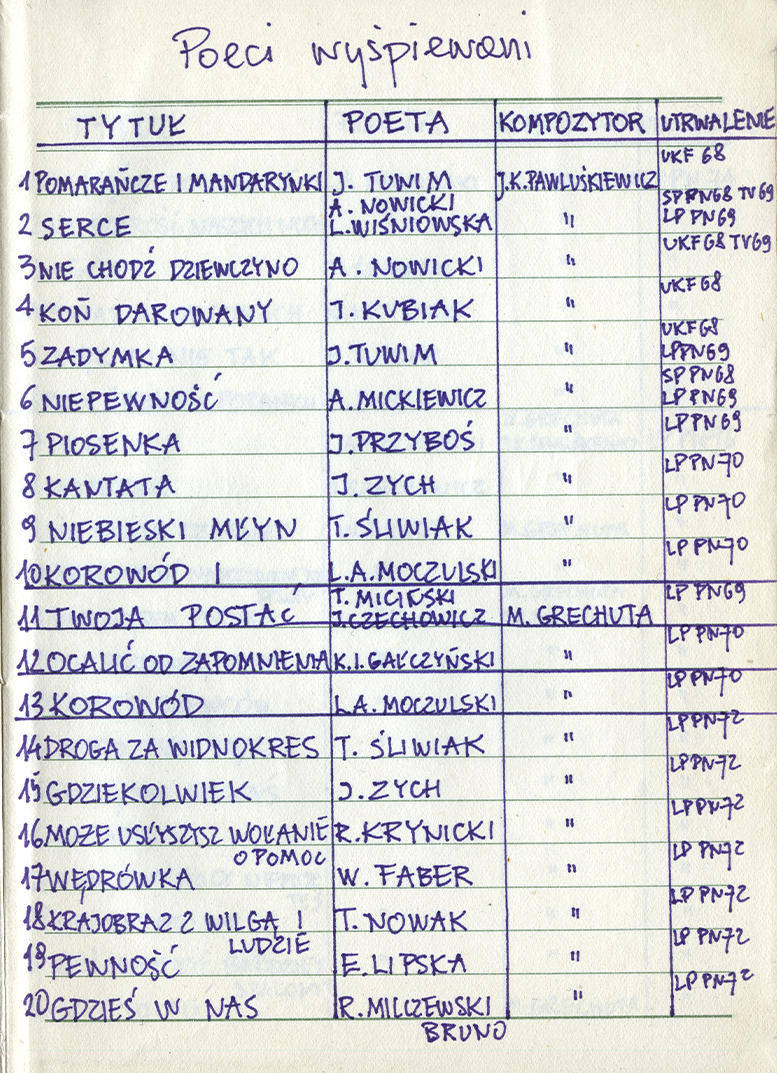 Poeci wyśpiewani
TYTUŁ POETA KOMPOZYTOR UTRWALENIE
1 POMARAŃCZE I MANDARYNKI J. TUWIM J.K.PAWLUŚKIEWICZ UKF 68
2 SERCE A. NOWICKI L.WIŚNIOWSKA " SP PN68 TV69 LP PN69
3 NIE CHODŹ DZIEWCZYNO A. NOWICKI " UKF68 TV69
4 KOŃ DAROWANY J. KUBIAK " UKF68
5 ZADYMKA J.TUWIM " UKF68 LPPN69
6 NIEPEWNOŚĆ A. MICKIEWICZ " SP PN68 LP PN69
7 PIOSENKA J.PRZYBOŚ " LP PN69
8 KANTATA J. ZYCH " LP PN70
9 NIEBIESKI MŁYN T. ŚLIWIAK " LP PN70
10 KOROWÓD I L.A.MOCZULSKI " LP PN70
11 TWOJA POSTAĆ T. MICIŃSKI J.CZECHOWICZ M. GRECHUTA LP PN69
12 OCALIĆ OD ZAPOMNIENIA K.I.GAŁCZYŃSKI " LP PN70
13 KOROWÓD L.A. MOCZULSKI " LP PN70
14 DROGA ZA WIDNOKRES T. ŚLIWIAK " LPPN72
15 GDZIEKOLWIEK J. ZYCH " LP PN72
16 MOŻE USŁYSZYSZ WOŁANIE O POMOC R.KRYNICKI " LPPN72
17 WĘDRÓWKA W. FABER " LP PN72
18 KRAJOBRAZ Z WILGĄ I LUDZIE T. NOWAK " LP PN72
19 PEWNOŚĆ E. LIPSKA " LP PN72
20 GDZIEŚ W NAS R. MILCZEWSKI BRUNO " LP PN72